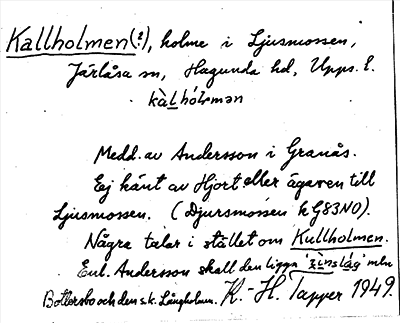 Kallholmen(?), holme i Ljusmossen,
Järlåsa sn, Hagunda hd, Upps. l.
kàlhólmən
Medd. av Andersson i Granås.
Ej känt av Hjort eller ägaren till
Ljusmossen. (Djursmossen kG83NO).
Några talar i stället om Kullholmen.
Enl. Andersson skall den ligga mln
Bottersbo och den s.k. Långholm. K.-H. Tapper 1949.